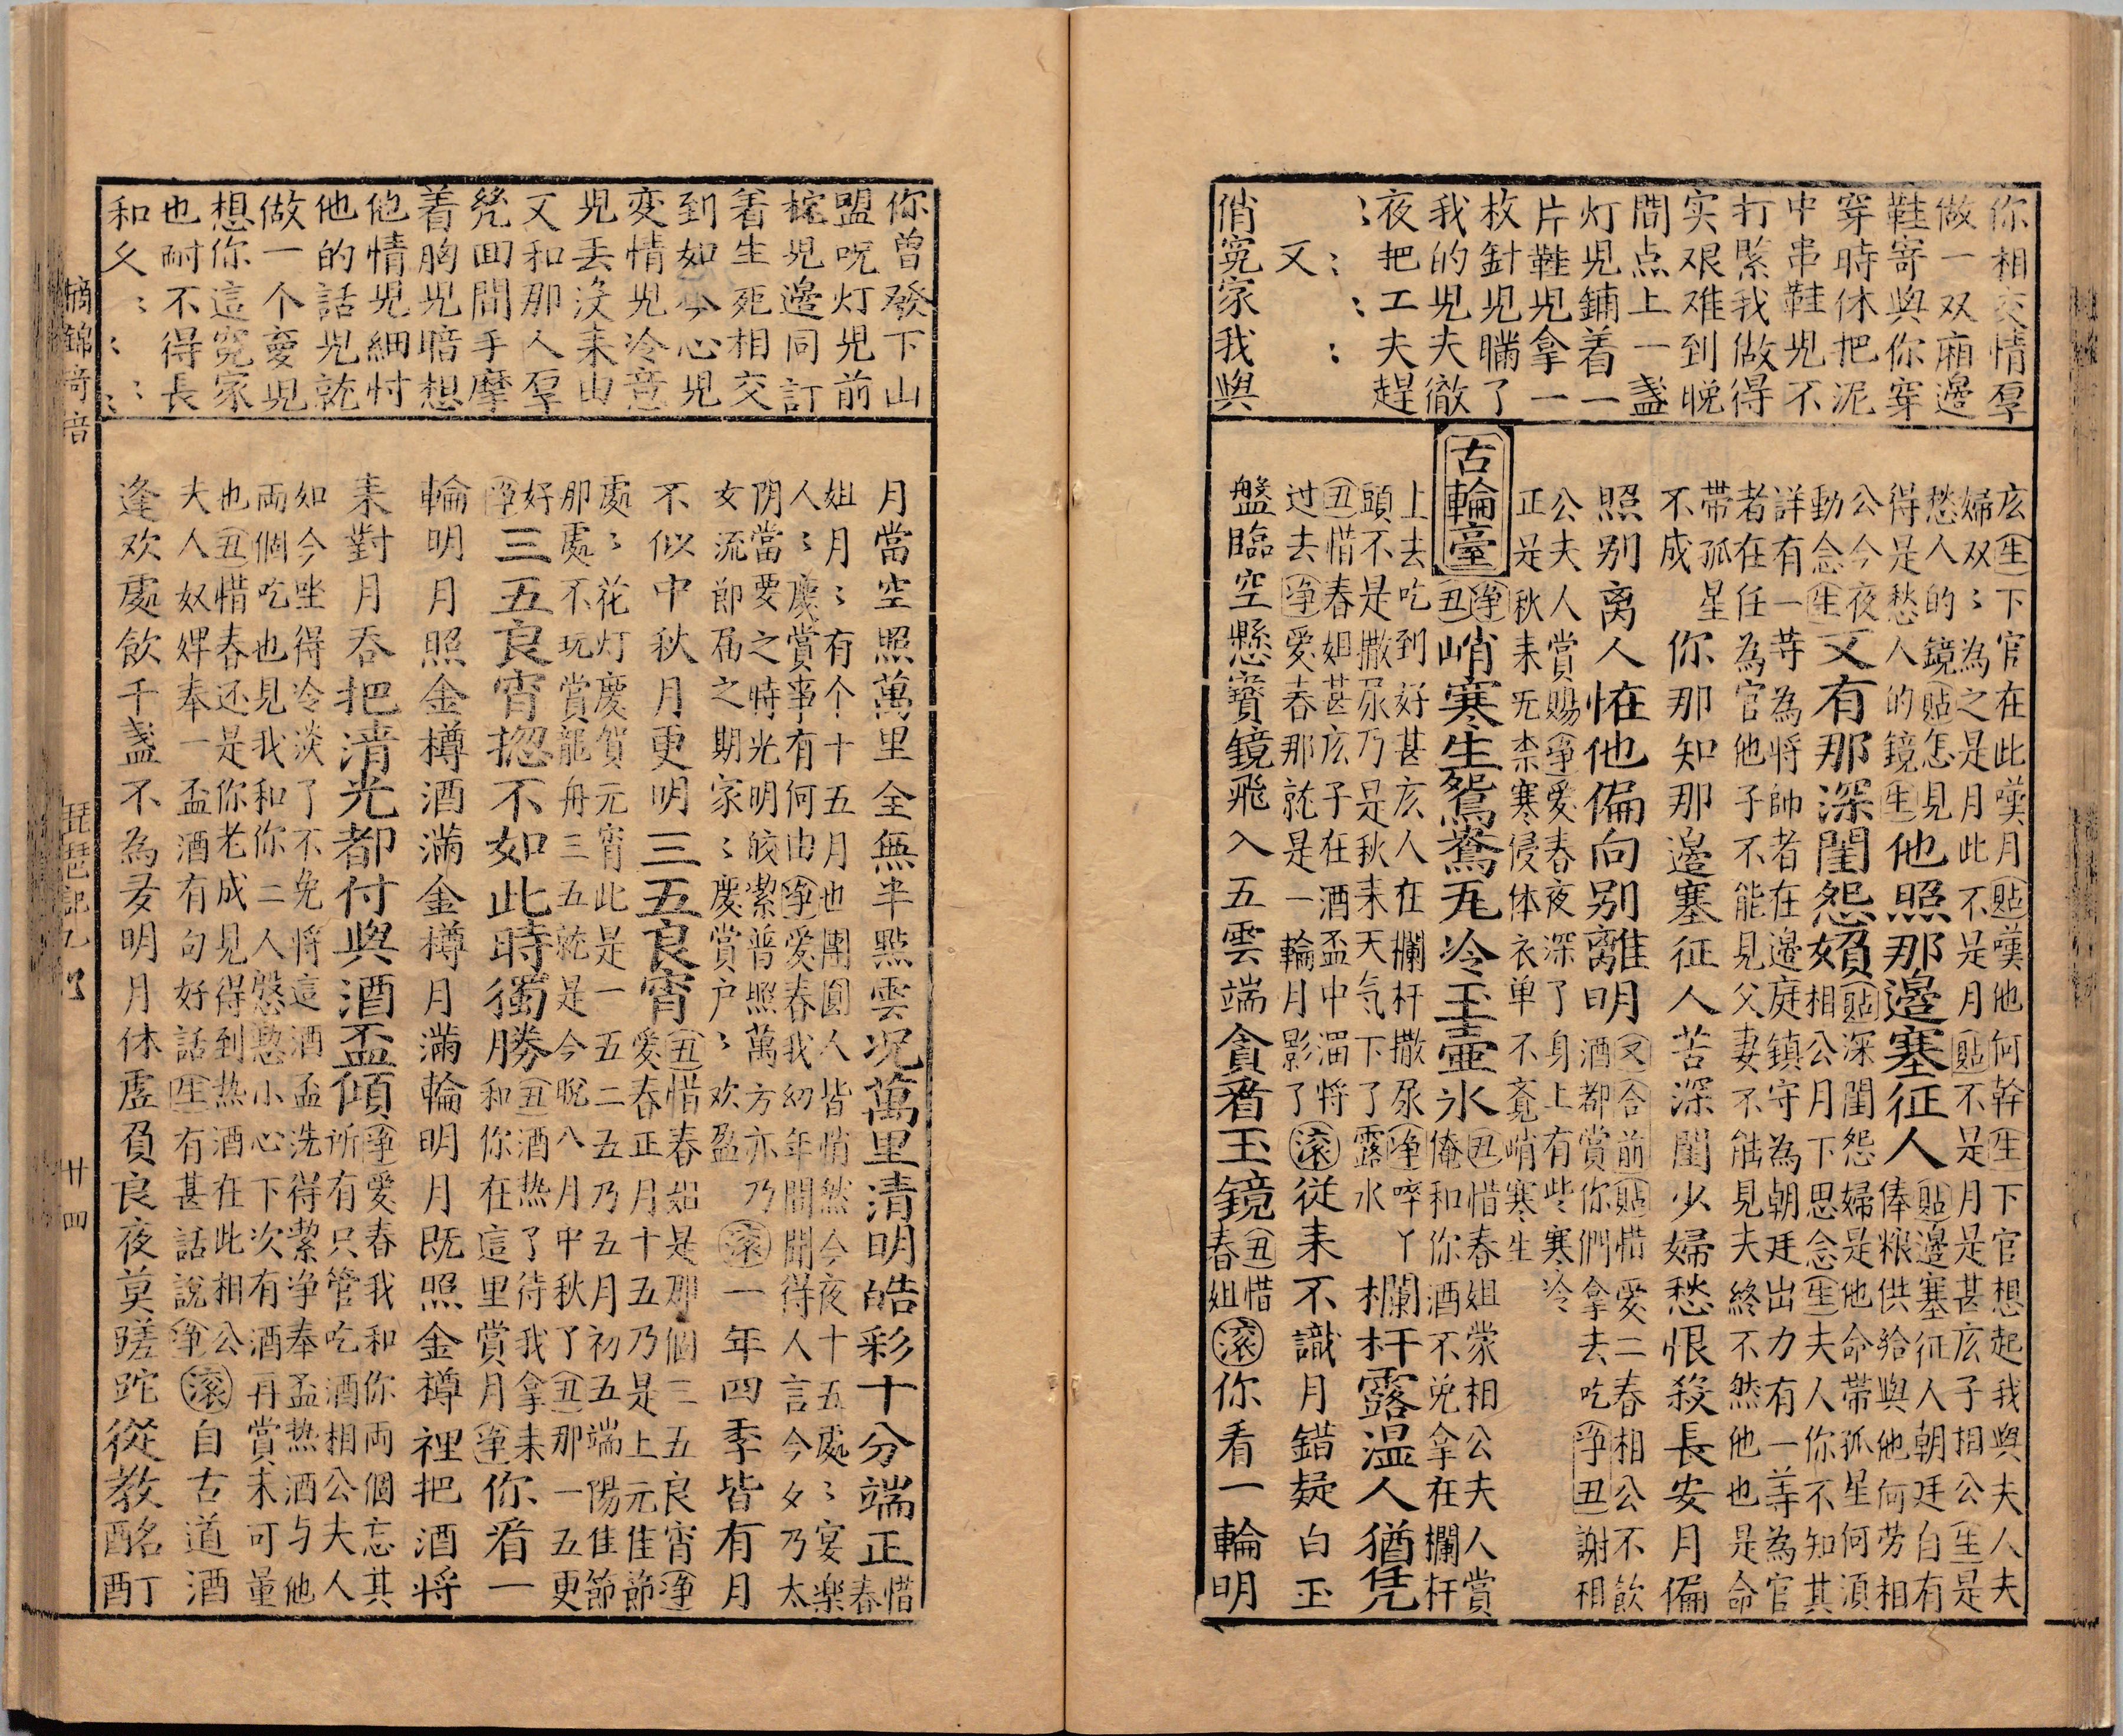 你相交情厚
做一双廂邊
鞋寄與你穿
穿時休把泥
中串鞋兒不
打緊我做得
实艰难到晚
間点上一盞
灯兒鋪着一
片鞋兒拿一
枚針兒瞞了
我的兒夫徹
夜把工夫趕
：：：：
又
俏寃家我與
庅生下官在此嘆月貼嘆他何幹生下官想起我與夫人夫
婦双〻為之是月此不是月貼不是月是甚庅子相公生是
愁人的鏡貼怎見
得是愁人的鏡生他照那邊塞征人貼邊塞征人朝廷白有
俸粮供給與他何劳相
公今夜
動念生又有那深閨怨婦貼深閨怨婦是他命带孤星何須
相公月下思念生夫人你不知其
詳有一等為將帥者在邊庭鎮守為朝廷出力有一等為官
者在任為官他子不能見父妻不能見夫終不然他也是命
带孤星
不成你那知那邊塞征人苦深閨少婦愁恨殺長安月偏
照别离人恠他偏向别離明又合前貼惜愛二春相公不飲
酒都賞你們拿去吃爭丑謝相
公夫人賞賜净愛春夜深了身上有些寒冷
正是秋来旡柰寒侵体衣单不竟峭寒生
古輪臺净丑峭寒生鴛鴦瓦冷玉壺氷丑惜春姐蒙相公夫人賞
俺和你酒不免拿在欄杆
上去吃到好甚庅人在欄杆撒尿净啐丫
頭不是撒尿乃是秋来天气下了露水欄杆露温人猶凭
丑惜春姐甚庅子在酒盃中㴰將
过去净愛春那就是一輪月影了滚從来不識月錯疑白玉
盤臨空懸寳鏡飛入五雲端貪看玉鏡丑惜
春姐滚你看一輪明
你曾發下山
盟呪灯兒前
檯兒邊同訂
着生死相交
到如今心兒
变情兒冷意
兒丢没来由
又和那人厚
凳回間手摩
着胸兒暗想
他情兒細忖
他的話兒就
做一个夣兒
想你這寃家
也耐不得長
和久：：：：
月當空照萬里全無半點雲况萬里清明皓彩十分端正惜
春
姐月〻有个十五月也團圓人皆悄然今夜十五處〻宴樂
人〻慶賞事有何由净愛春我幼年間聞得人言今夕乃太
阴當要之時光明皎潔普照萬方亦乃
女流節届之期家〻慶賞户〻欢盈滚一年四季皆有月
不似中秋月更明三五良宵丑惜春姐是那個三五良宵净
愛春正月十五乃是上元佳節
處〻花灯慶賀元宵此是一五二五乃五月初五端陽佳節
那處不玩賞龍舟三五就是今晚八月中秋了丑那一五更
好
净三五良宵摠不如此時獨勝丑酒热了待我拿来
和你在這里賞月净你看一
輪明月照金樽酒滿金樽月滿輪明月既照金樽裡把酒將
来對月吞把清光都付與酒盃傾净愛春我和你両個忘其
所有只管吃酒相公夫人
如今坐得冷淡了不免將這酒盃洗得潔净奉盃热酒与他
両個吃也見我和你二人慇懃小心下次有酒再賞未可量
也丑惜春还是你老成見得到热酒在此相公
夫人奴婢奉一盃酒有句好話生有甚話說净滚自古道酒
逢欢處飲千盞不為多明月休虚負良夜莫蹉跎從教酩酊
摘錦奇音
琵琶記九
廿四